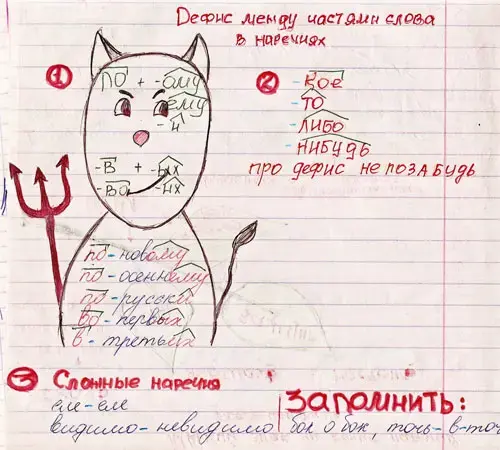 Дефис между частями слова
в наречиях
1
по + -ому
-ему
-и
-в + -ых
-во -их
по-новому
по-осеннему
по-русски
во-первых
в-третьих
2
-кое
-то
-либо
-нибудь
про дефис не позабудь
3 Сложные наречия
еле-еле
видимо-невидимо
Запомнить:
бок о бок, точь-в-точ